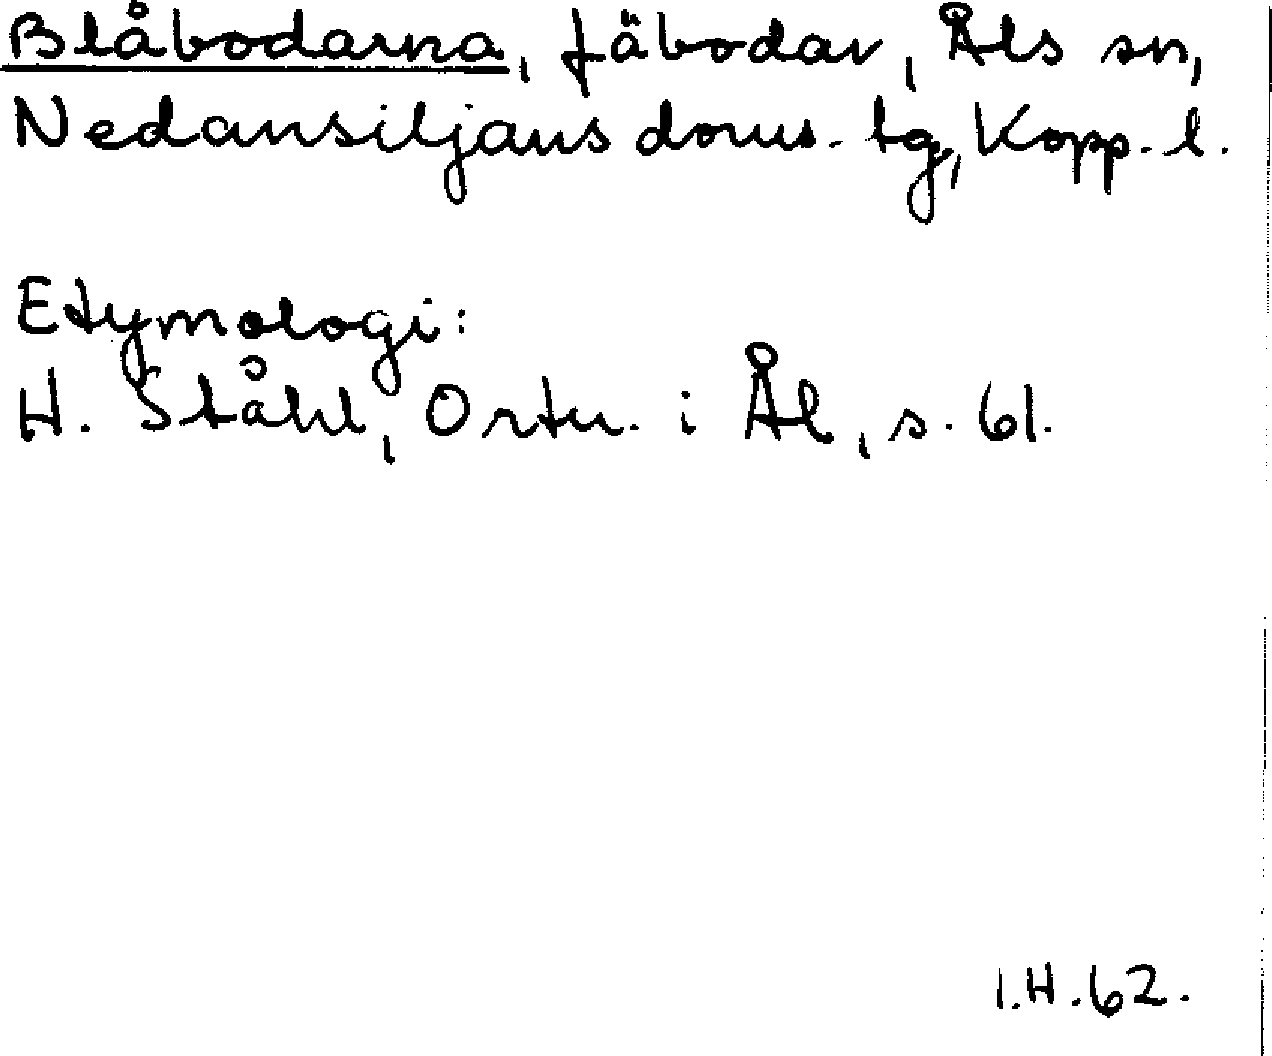 Blåbodarna, fäbodar, Åls sn,
Nedansiljans doms. tg, Kopp. l.
Etymologi:
H. Ståhl, Ortn. i Ål, s. 61.
I.H. 62.